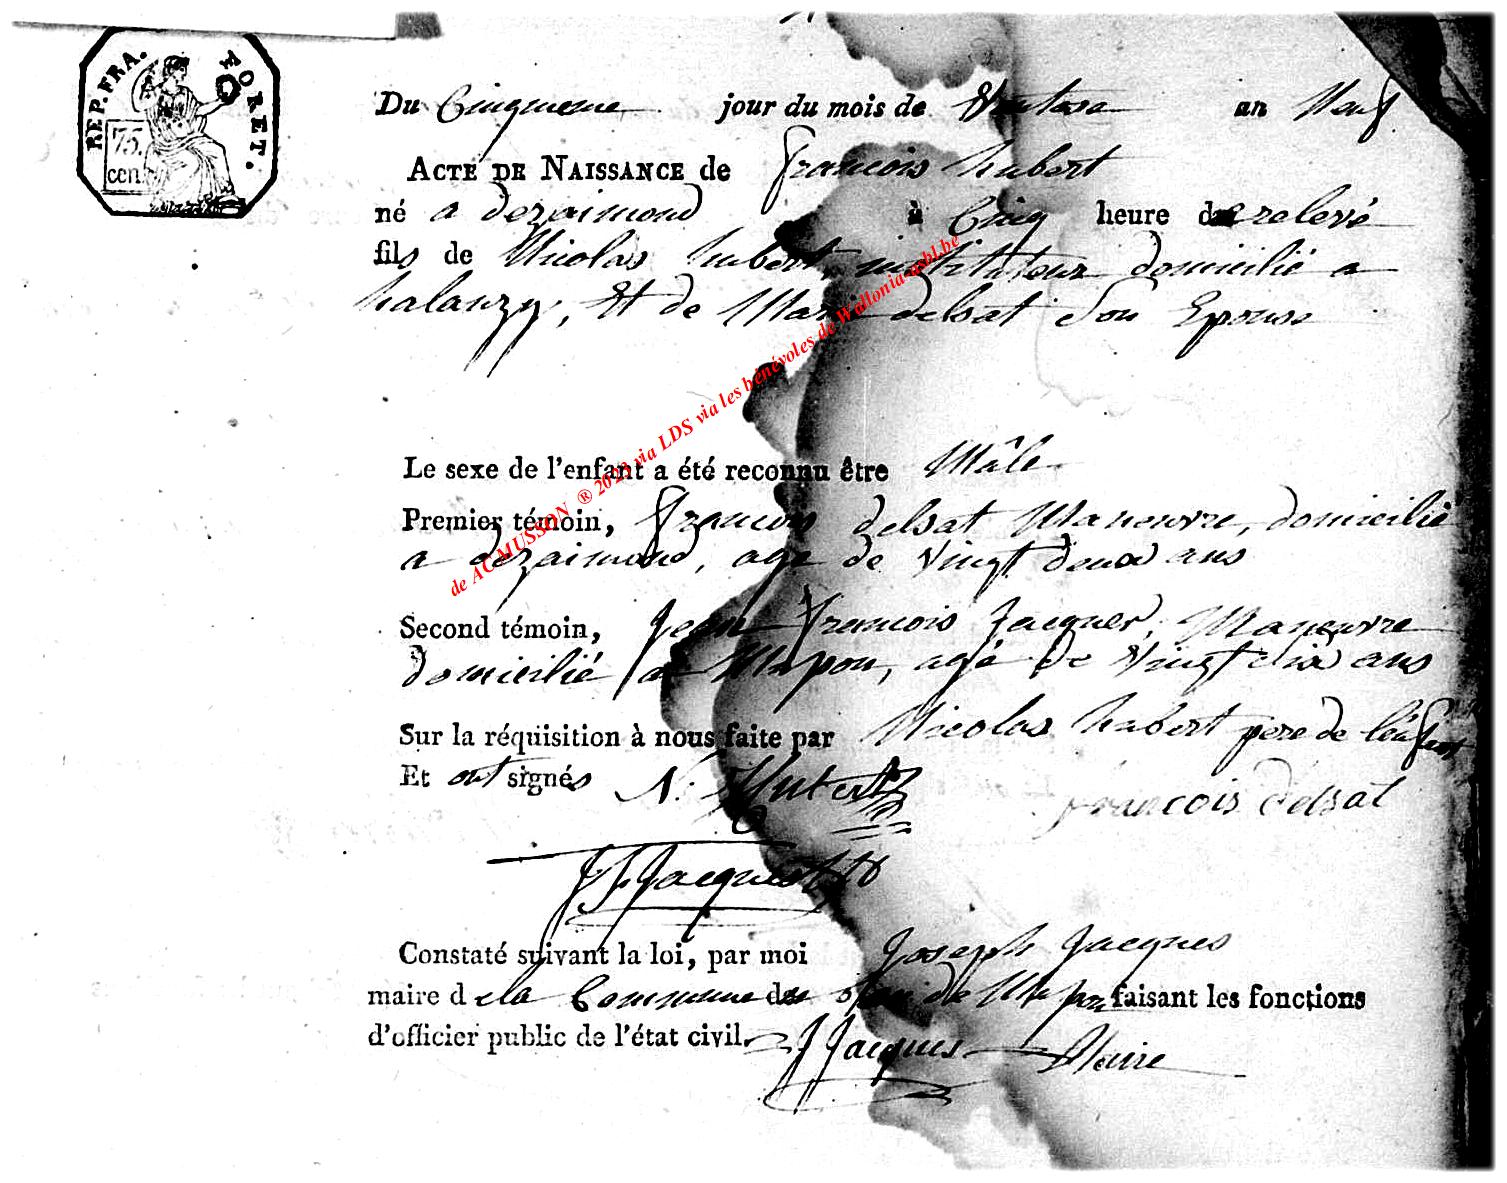 REP. FRA.
FORET.
75.
cen.
Du Cinquieme jour du mois de Ventose an Neuf
ACTE DE NAISSANCE de francois hubert
né a dezaimond à Cinq heure de relevé
fils de Nicolas hubert, instituteur domicilié a
halanzy, Et de Marie delsat Son Epouse
Le sexe de l'enfant a été reconnu être Mâle
Premier témoin, francois delsat Maneuvre, domicilié
a dezaimond, age de vingt deux ans
Second témoin, Jean francois Jacques, Maneuvre
domicilié a Mupon, agé de vingt dix ans
Sur la réquisition à nous faite par Nicolas hubert pere de lenfant
Et ont signés N. Hubert francois delsat
J f Jacques
Constaté suivant la loi, par moi Joseph Jacques
maire d ela Commune de de faisant les fonctions
d'officier public de l'état civil. J Jacques Maire
de AC MUSSON ® 2023 via LDS via les bénévoles de Wallonia-asbl.be